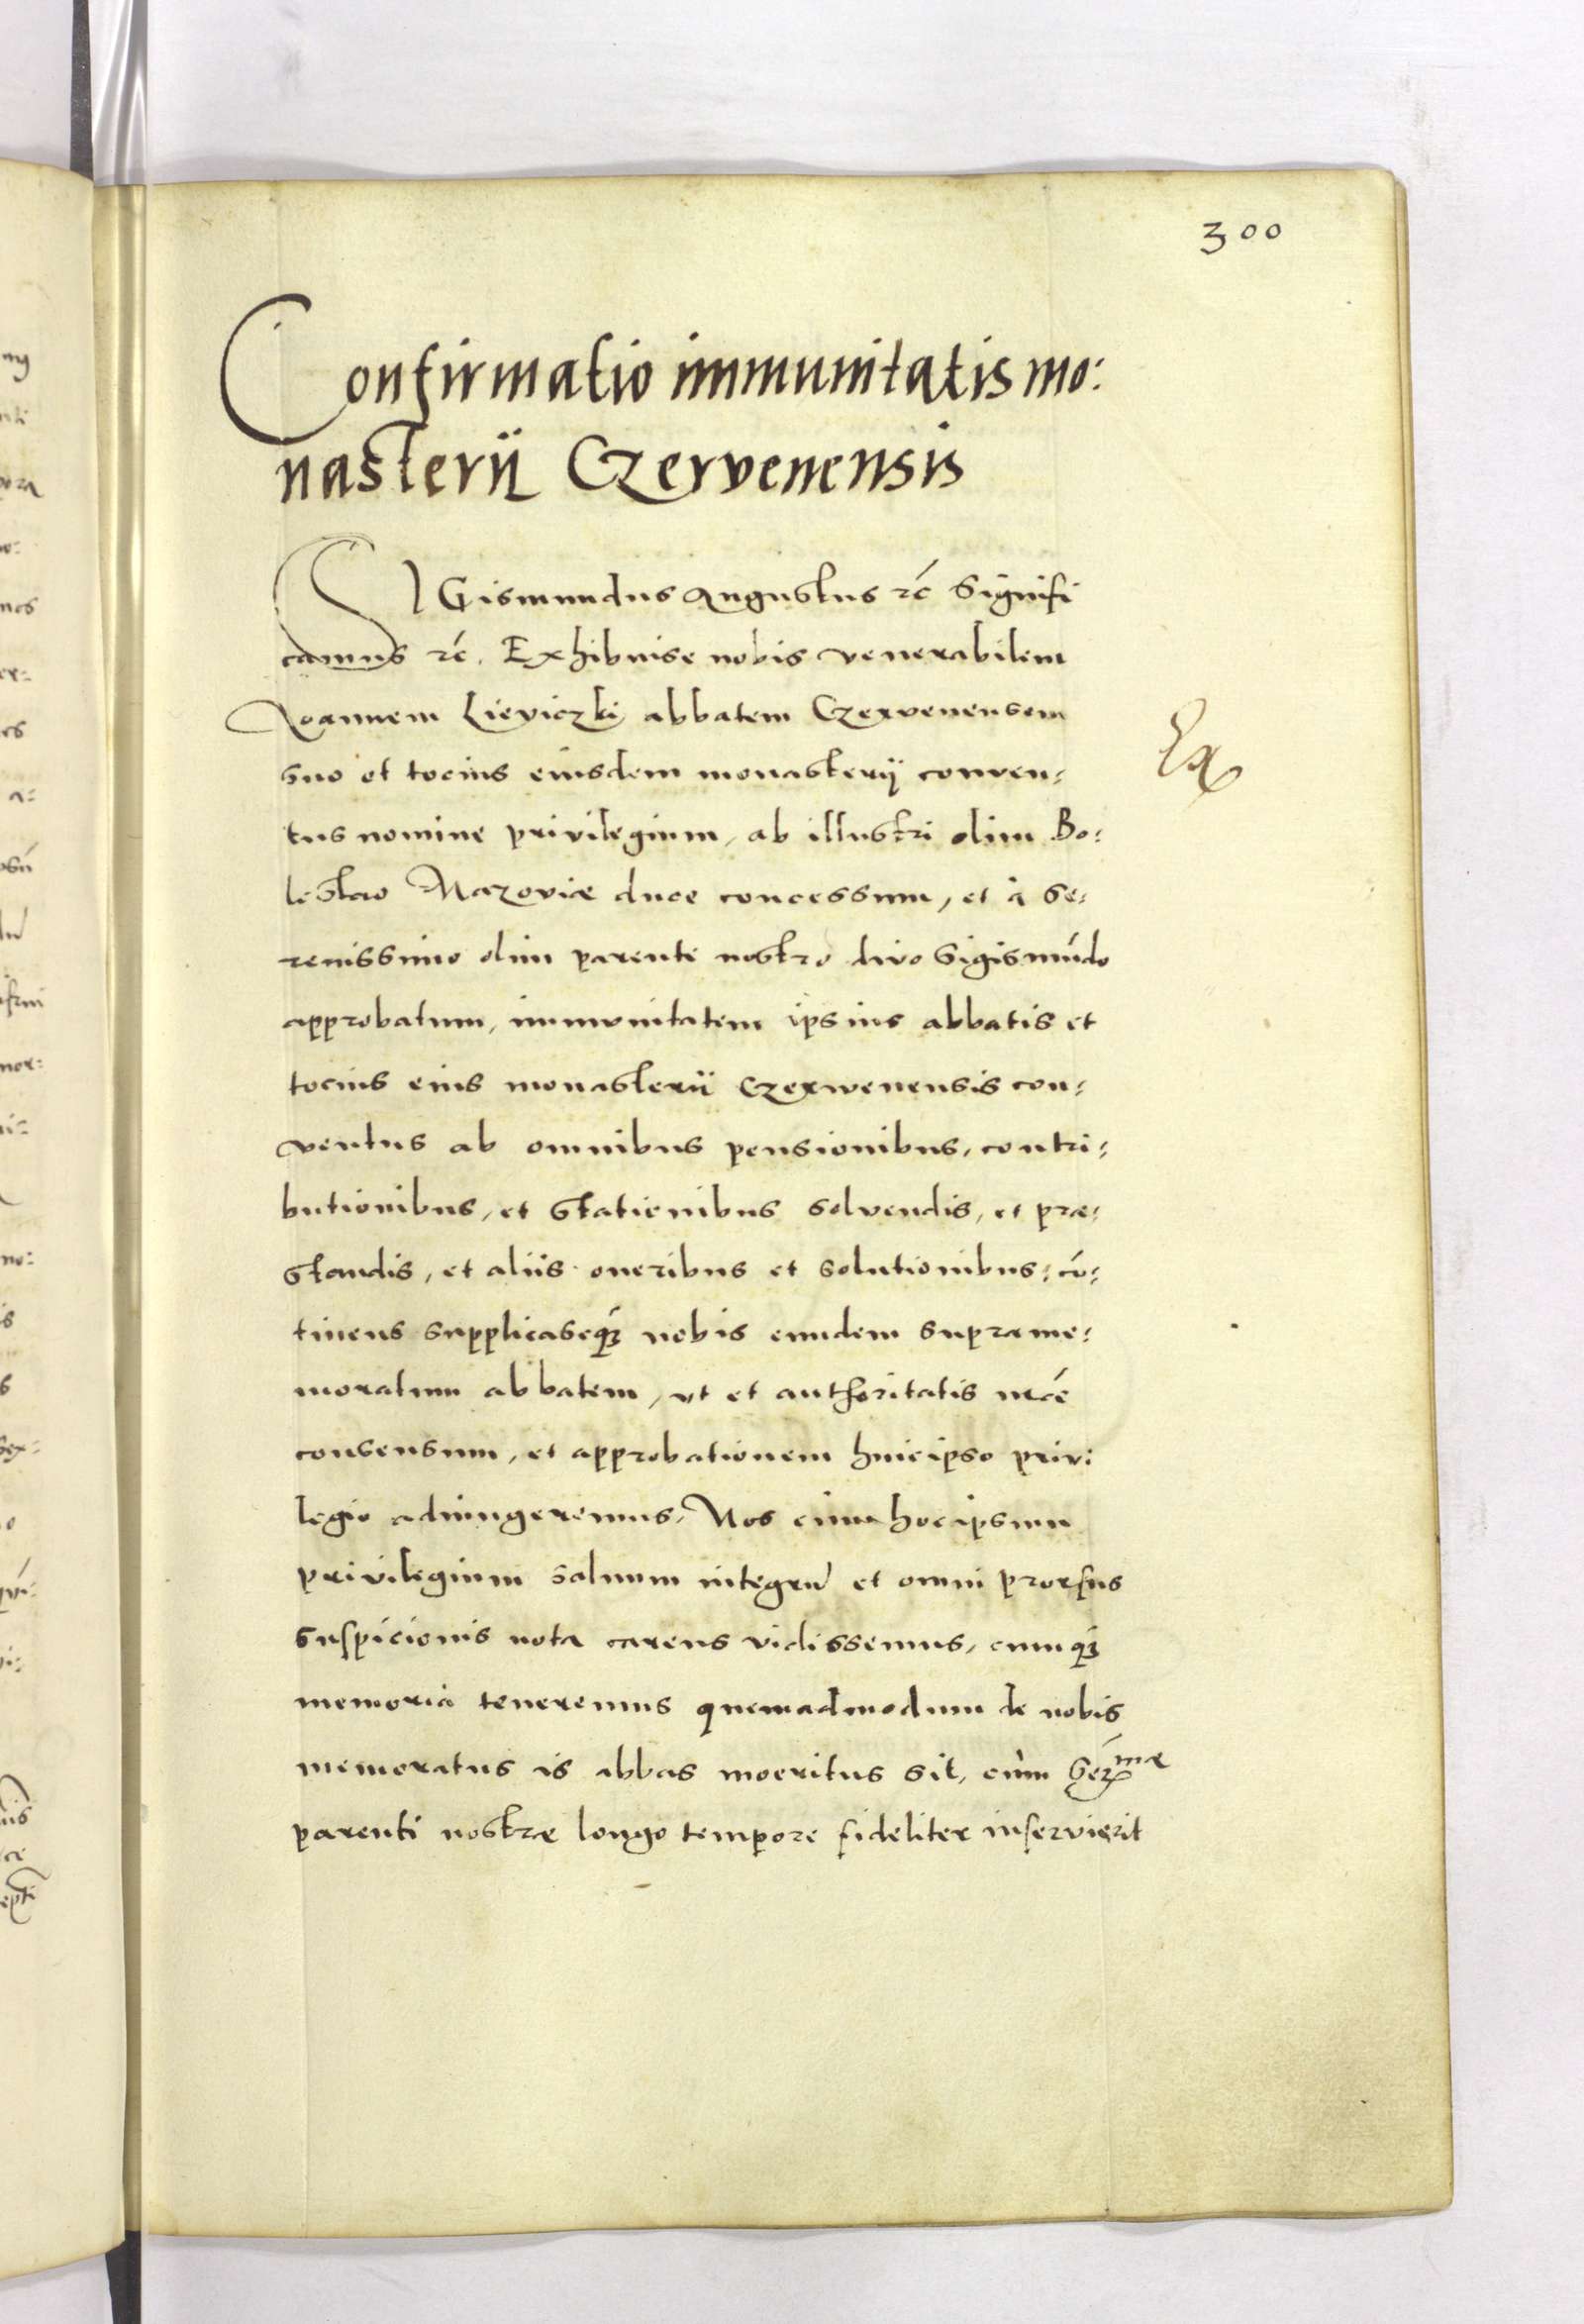 300
Confirmatio immunitatis mo:
nasterij Czervenensis
SIGismundus Augustus rc̄ Signifi
camus rc̄. Exhibuise nobis venerabilem
Joannem Lieviczki abbatem Czervenensem
suo et tocius eiusdem monasterij conven:
tus nomine privilegium, ab illustri olim Bo:
leslao Mazoviæ duce concessum, et à se:
renissimo olim parente nostro divo Sigismūdo
approbatum, immunitatem ipsius abbatis et
tocius eius monasterii Czerwenensis con:
ventus ab omnibus pensionibus, contri:
butionibus, et stationibus solvendis, et præ:
standis, et aliis oneribus et solutionibus: cō:
tinens supplicaseqꝫ nobis eundem suprame:
moratum abbatem, ut et authoritatis nr̄æ
consensum, et approbationem huic ipso privi
legio adiungeremus, Nos cum hoc ipsum
privilegium salvum integrū et omni prorsus
suspicionis nota carens vidissemus, cumqꝫ
memoria teneremus quemadmodum de nobis
memoratus is abbas moeritus sit, cùm Ser̄mæ
parenti nostræ longo tempore fideliter inservierit
Ex